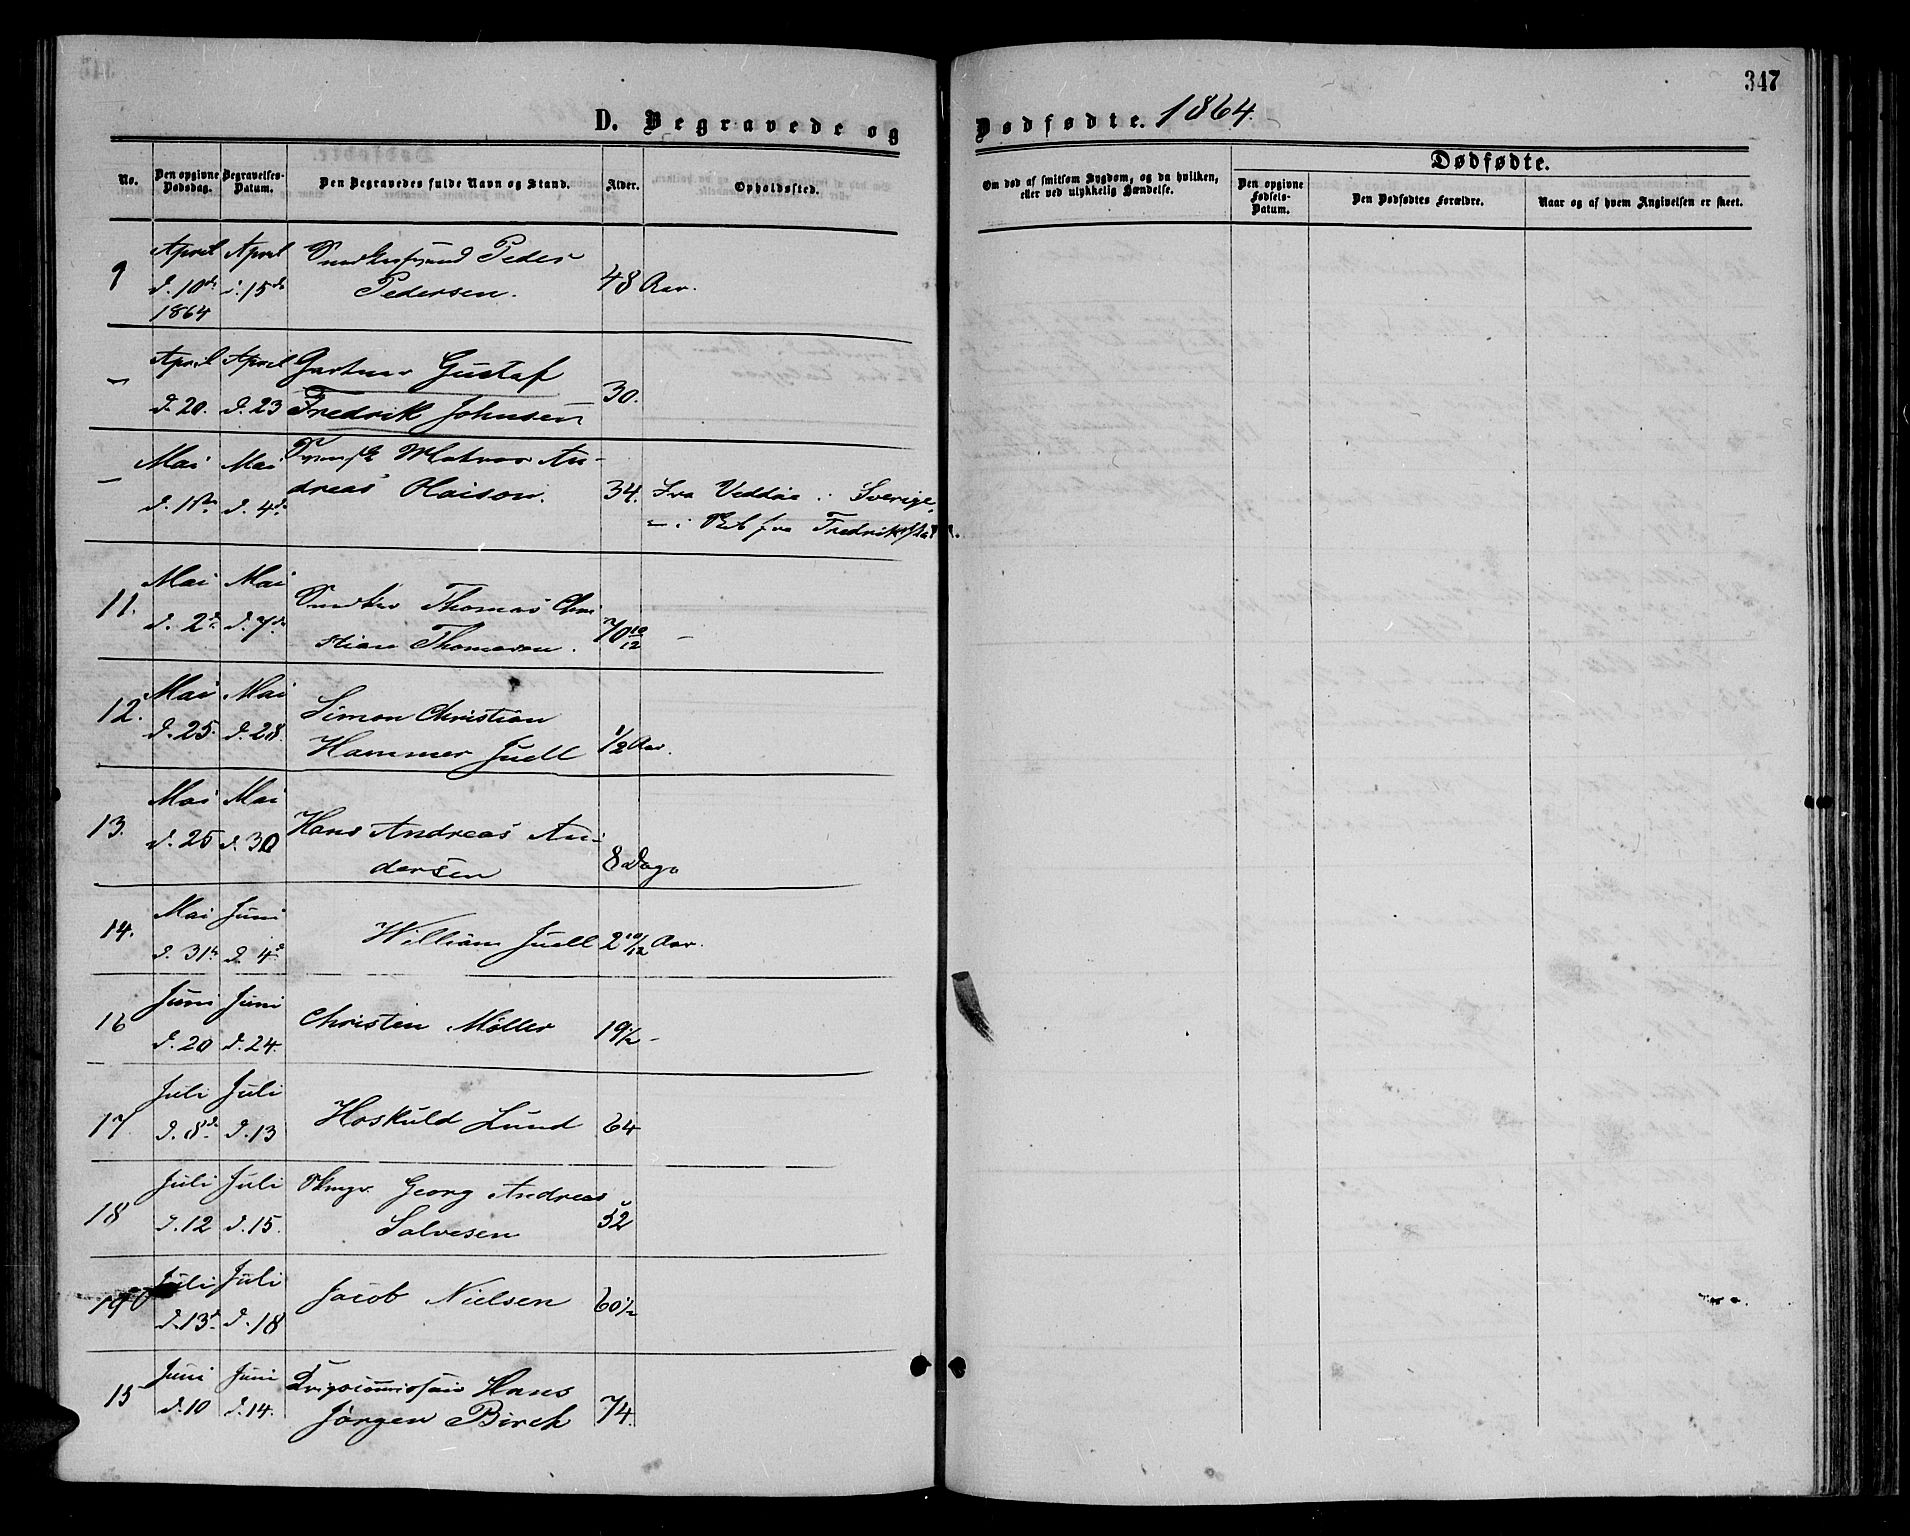 347
D. Begravede og Dødfødte. 1864.
No. Den opgivne Dødsdag. Begravelses-Datum. Den Begravedes fulde Navn og Stand. Alder. Opholdssted.
Om død af smitsom Sygdom, og da hvilken, eller ved ulykkelig Hændelse.
Dødfødte.
Den opgivne Fødsels-Datum. Den Dødfødtes Forældre. Naar og af hvem Angivelsen er skeet.
9 April April Peder
d. 10de d. 15de Pedersen. 48 Aar.
1864
– April April Gartner Gustaf
d. 20. d. 23 Fredrik Johnsen 30.
– Mai Mai Matros An-
d. 1ste d. 4de dreas Olaison. 34. Fra Veddöe i Sverige,
fra Fredrikstad.
11. Mai Mai Snedker Thomas Chri
d. 2de d. 7de stian Thomesen. 70 10/12 –
12. Mai Mai Simon Christian
d. 25. d. 28. Hammer Juell 1/2 Aar.
13. Mai Mai Hans Andreas An-
d. 25 d. 30 dersen 8 Dage
14. Mai Juni William Juell 2 10/12 Aar.
d. 31te d. 4de
16 Juni Juni Christen Möller 19 1/2 –
d. 20 d. 24.
17 Juli Juli Hoskuld Lund 64
d. 8de d. 13
18 Juli Juli Georg Andreas
d. 12 d. 15. Salvesen 52
19 Juli Juli Jacob Nielsen 60 1/2
d. 13de d. 18
15 Juni Juni Krigscommissair Hans
d. 10 d. 14. Jörgen Birch 74.